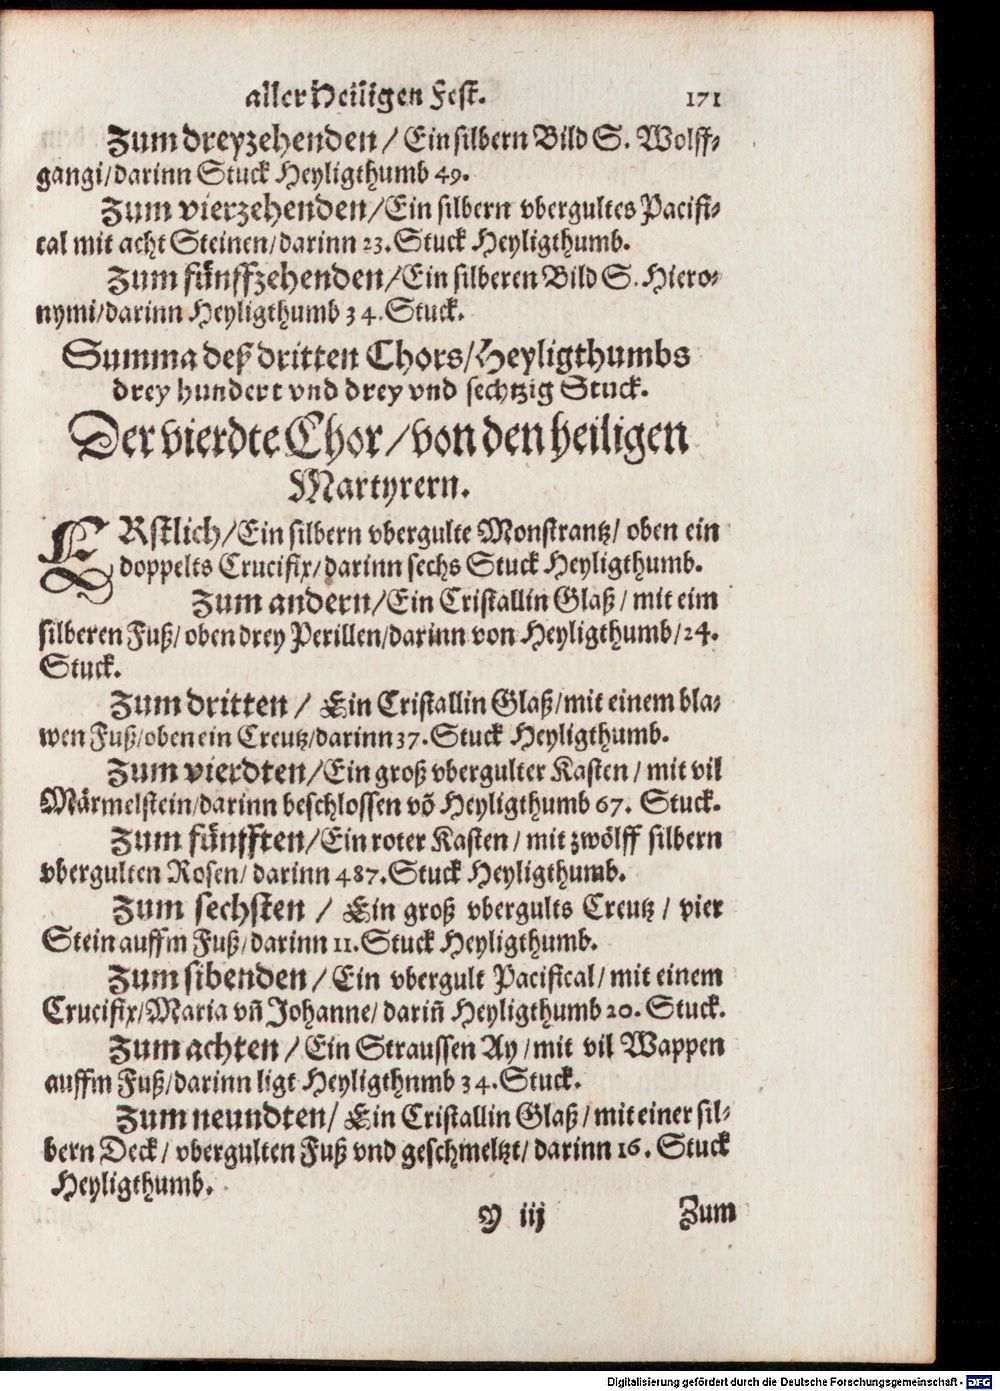 aller Heiligen Fest. 171
Zum dreyzehenden / Ein silbern Bild S. Wolff-
gangi/darinn Stuck Heyligthumb 49.
Zum vierzehenden/Ein silbern vbergultes Pacifi-
cal mit acht Steinen/darinn 23. Stuck Heyligthumb.
Zum fünffzehenden/Ein silberen Bild S. Hiero-
nymi/darinn Heyligthumb 34. Stuck.
Summa deß dritten Chors/Heyligthumbs
drey hundert vnd drey vnd sechtzig Stuck.
Der vierdte Chor/von den heiligen
Martyrern.
ERstlich/Ein silbern vbergulte Monstrantz/ oben ein
doppelts Crucifix/darinn sechs Stuck Heyligthumb.
Zum andern/Ein Cristallin Glaß / mit eim
silberen Fuß/ oben drey Perillen/darinn von Heyligthumb/24.
Stuck.
Zum dritten / Ein Cristallin Glaß/mit einem bla-
wen Fuß/oben ein Creutz/darinn 37. Stuck Heyligthumb.
Zum vierdten/Ein groß vbergulter Kasten / mit vil
Märmelstein/darinn beschlossen võ Heyligthumb 67. Stuck.
Zum fünfften/Ein roter Kasten / mit zwölff silbern
vbergulten Rosen/ darinn 487. Stuck Heyligthumb.
Zum sechsten / Ein groß vbergults Creutz / vier
Stein auffm Fuß/darinn 11. Stuck Heyligthumb.
Zum sibenden / Ein vbergult Pacifical/ mit einem
Crucifix/Maria vñ Johanne/ dariñ Heyligthumb 20. Stuck.
Zum achten / Ein Straussen Ay / mit vil Wappen
auffm Fuß/darinn ligt Heyligthnmb 34. Stuck.
Zum neundten/ Ein Cristallin Glaß / mit einer sil-
bern Deck / vbergulten Fuß vnd geschmeltzt/ darinn 16. Stuck
Heyligthumb.
Y iij Zum
Digitalisierung gefördert durch die Deutsche Forschungsgemeinschaft - DFG